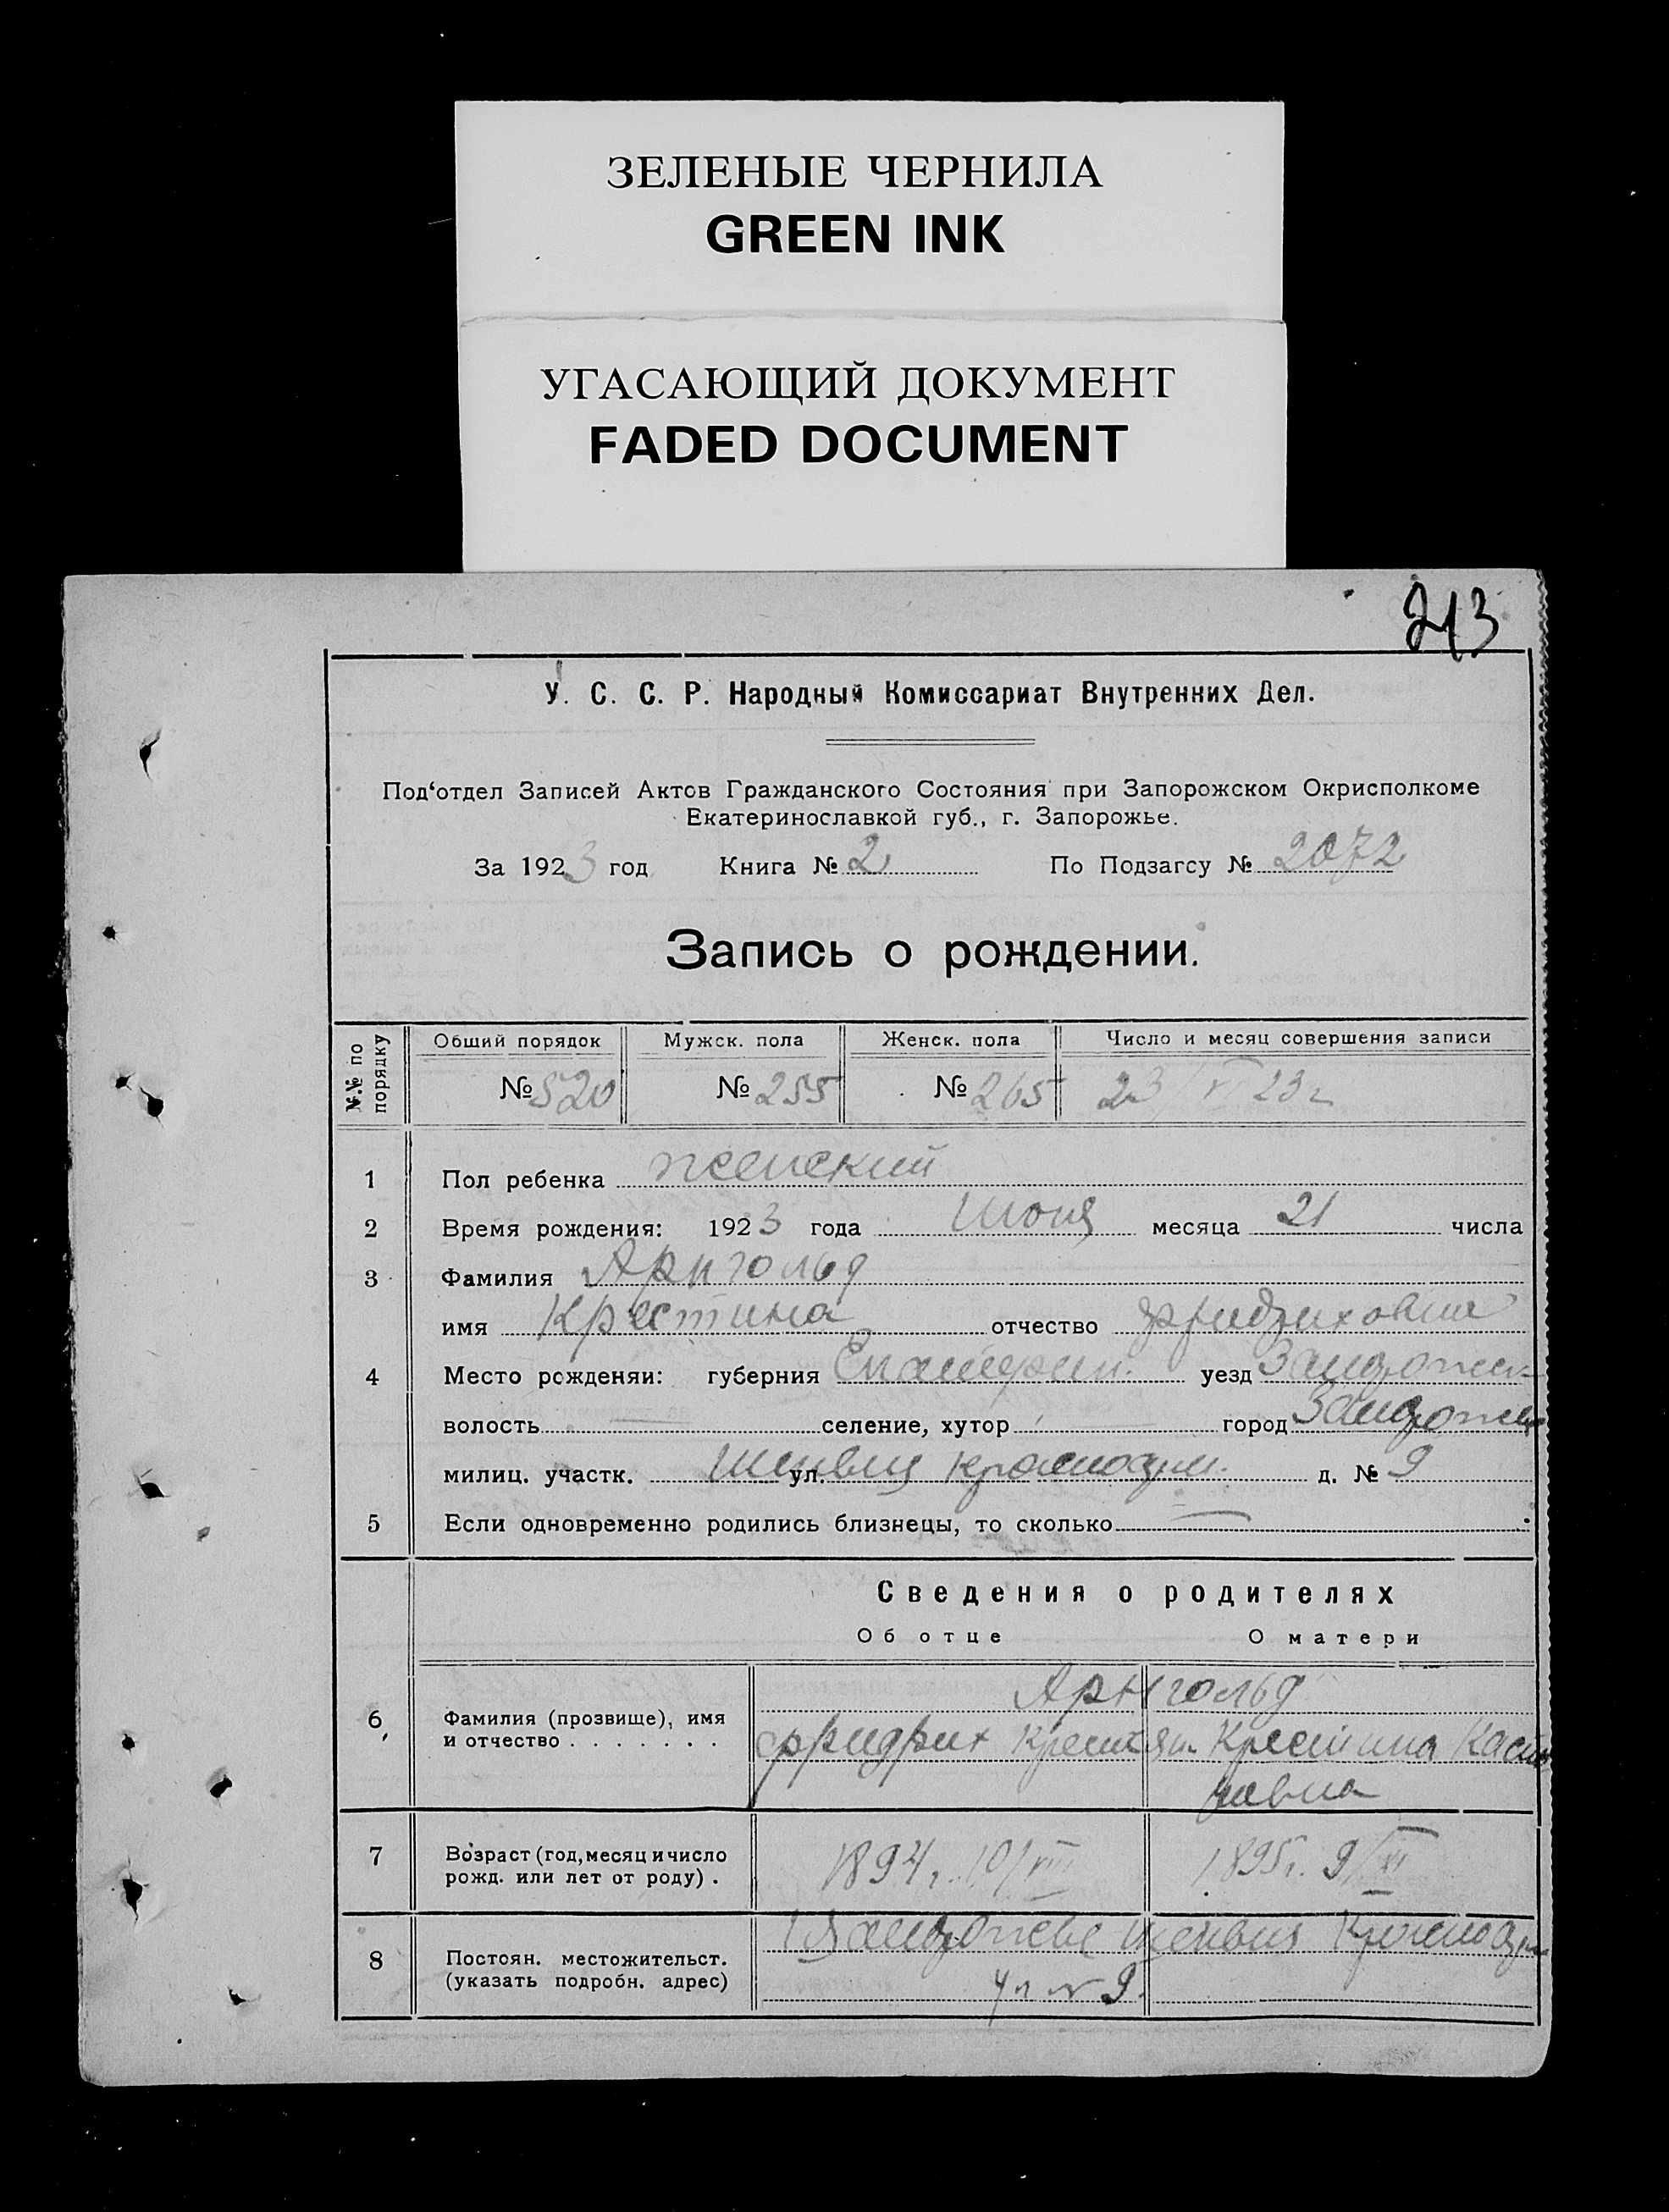 ЗЕЛЕНЫЕ ЧЕРНИЛА
GREEN INK
УГАСАЮЩИЙ ДОКУМЕНТ
FADED DOCUMENT
213
У. С. С. Р. Народный Комиссариат Внутренних Дел.
Под‘отдел Записей Актов Гражданского Состояния при Запорожском Окрисполкоме
Екатеринославкой губ., г. Запорожье.
За 1923 год Книга № 2 По Подзагсу № 2072
Запись о рождении.
№.№ по порядку Общий порядок Мужск. пола Женск. пола Число и месяц совершения записи
№ 520 № 255 № 265 23/VI 23 г
1 Пол ребенка женский
2 Время рождения: 1923 года Июня месяца 21 числа
3 Фамилия Арнгольд
имя Крестина отчество
4 Место рожденяи: губерния Екатерин. уезд Запорожск
волость селение, хутор город Запорожье
милиц. участк. ул. д. № 9
5 Если одновременно родились близнецы, то сколько —
Сведения о родителях
Об отце О матери
Арнгольд
6 Фамилия (прозвище), имя
и отчество . . . . . . . Фридрих Крестьян. Крестина
7 Возраст (год, месяц и число
рожд. или лет от роду) . 1894 г. 10/VIII 1895 г. 9/XI
8 Постоян. местожительст.
(указать подробн. адрес) Запорожье
ул № 9.